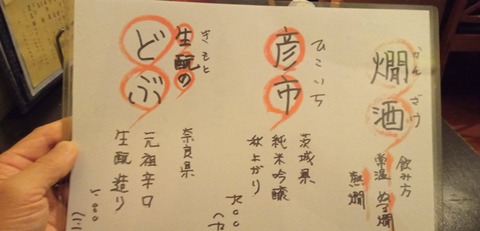 燗酒
かんざけ
飲み方
常温 ぬる燗
熱燗
彦市
ひこいち
茨城県
純米吟醸
秋上がり
生酛の
きもと
どぶ
奈良県
元祖辛口
生酛造り